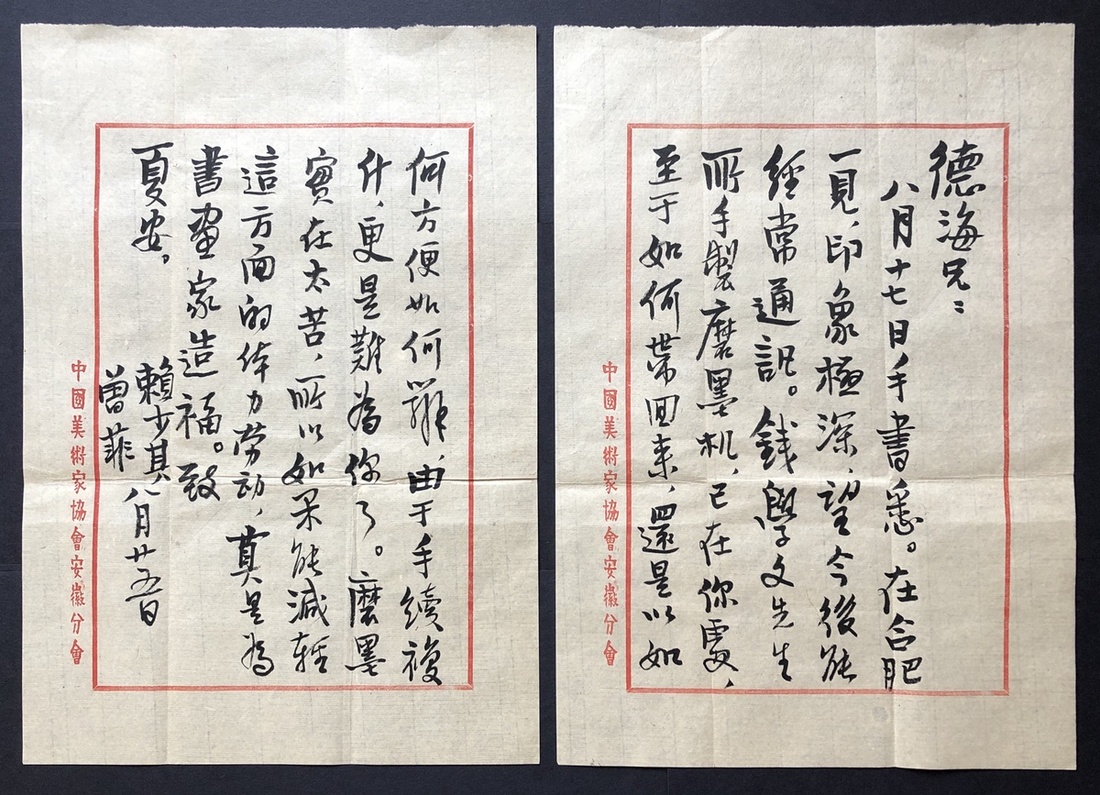 德海兄：
八月十七日手書悉。在合肥
一見，印象極深，望今後能
經常通訊。錢學文先生
所手製磨墨机，已在你處，
至于如何带回来，還是以如
中國美術家協會安徽分會
何方便如何辦，由于手續複
什，更是難為你了。磨墨
實在太苦，所以如果能減輕
這方面的体力劳动，真是為
書畫家造福。致
夏安。
賴少其
曾菲
八月廿五日
中國美術家協會安徽分會